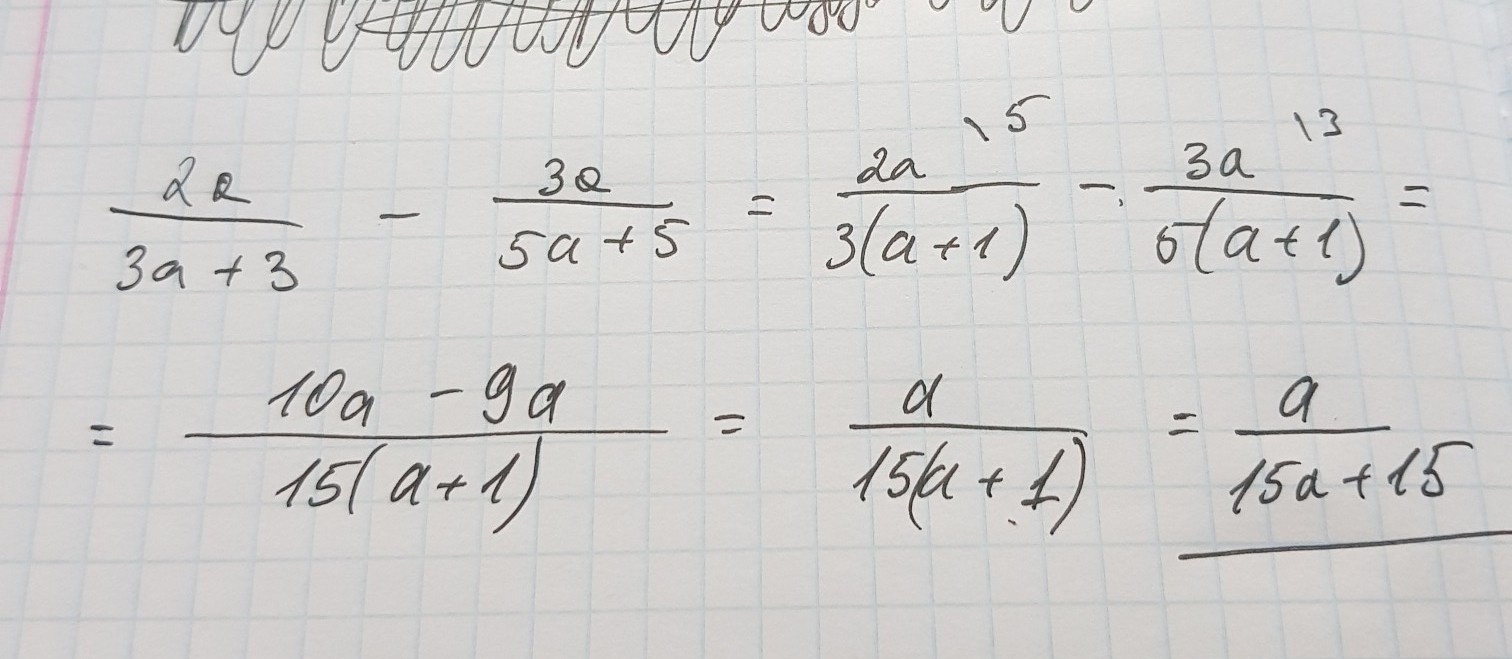 2a/(3a + 3) - 3a/(5a + 5) = 2a\5/(3(a + 1)) - 3a\3/(5(a + 1)) =
= (10a - 9a)/(15(a + 1)) = a/(15(a + 1)) = a/(15a + 15)